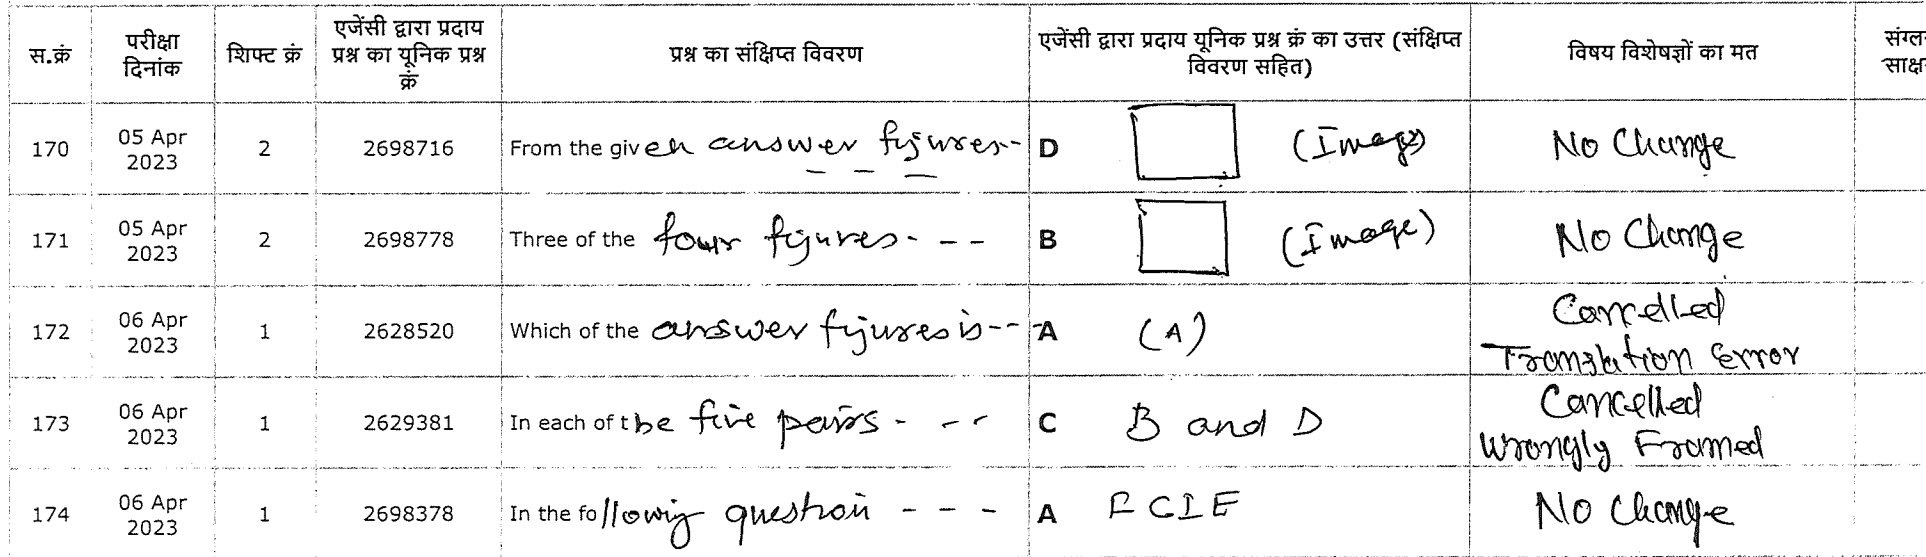 स.क्रं परीक्षा दिनांक शिफ्ट क्रं एजेंसी द्वारा प्रदाय प्रश्न का यूनिक प्रश्न क्रं प्रश्न का संक्षिप्त विवरण एजेंसी द्वारा प्रदाय यूनिक प्रश्न क्रं का उत्तर (संक्षिप्त विवरण सहित) विषय विशेषज्ञों का मत
170 05 Apr 2023 2 2698716 From the given answer figures-- D (Image) No Change
171 05 Apr 2023 2 2698778 Three of the four figures. -- B (Image) No Change
172 06 Apr 2023 1 2628520 Which of the answer figures is --- A (A) Cancelled Translation Error
173 06 Apr 2023 1 2629381 In each of the five pairs - -- C B and D Cancelled Wrongly Framed
174 06 Apr 2023 1 2698378 In the following question --- A No Change